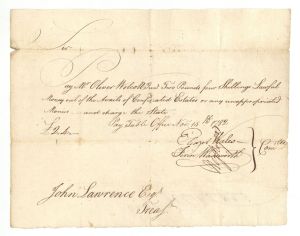 Sir
Pay Mr Oliver Wolcott Two Pounds four Shillings Lawful
Money out of the Avails of Confiscated Estates or any unappropriated
Monies and charge the State
Pay Table Office Nov 15th 1782
£2.4..
Wales
Fenn Wadsworth
Comtee
John Lawrence Esqr
Treasr